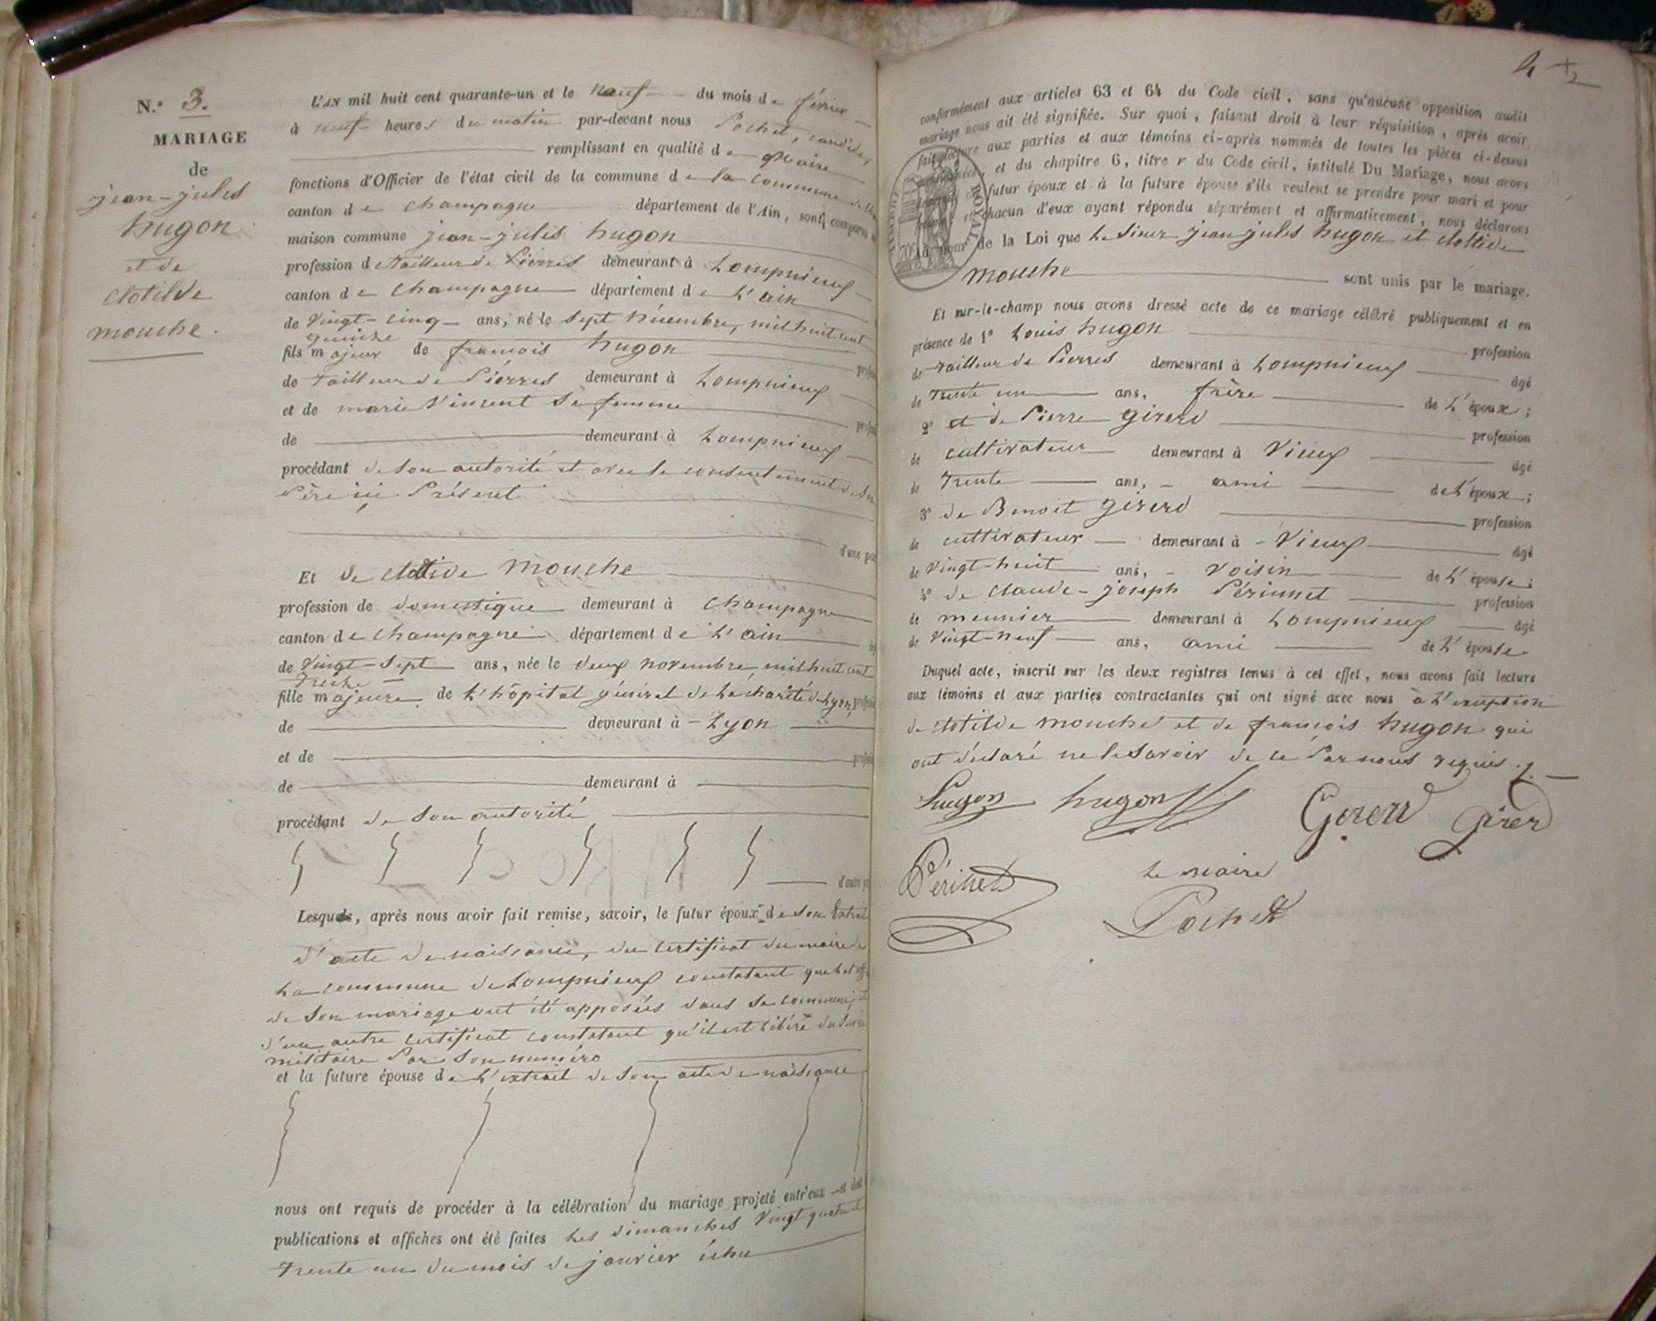 N.° 3.
MARIAGE
de
jean-jules
hugon
et de
Clotilde
mouche.
L'AN mil huit cent quarante-un et le neuf du mois de février
à neuf heures du matin par-devant nous Pochet, candide,
remplissant en qualité de Maire
fonctions d'Officier de l'état civil de la commune de la commune de
canton de Champagne département de l'Ain, sont comparus
maison commune jean-jules hugon
profession de tailleur de Pierres demeurant à Lompnieux
canton de Champagne département de L'ain
de Vingt-cinq ans, né le sept mil huit cent
quinze
fils majeur de francois hugon
de tailleur de Pierres demeurant à Lompnieux
et de marie Vincent sa femme
de demeurant à Lompnieux
procédant de son autorité et avec le consentement de son
Père ici Présent
d'une part
Et de clotilde mouche
profession de domestique demeurant à Champagne
canton de Champagne département de L'ain
de Vingt-sept ans, née le deux novembre mil huit cent
treize
fille majeure de L'hôpital général de La charité de Lyon,
de demeurant à Lyon
et de
de demeurant à
procédant de son autorité
d'autre part
Lesquels, après nous avoir fait remise, savoir, le futur époux de son Extrait
d'acte de naissance, du certificat du maire de
La commune de Lompnieux constatant que les
de son mariage ont été apposées dans sa commune, et
d'un autre certificat constatant qu'il est libéré du service
militaire Par son numéro
et la future épouse de L'extrait de son acte de naissance
nous ont requis de procéder à la célébration du mariage projeté entr'eux et dont
publications et affiches ont été faites Les dimanches Vingt quatre et
trente un du mois de janvier échu
4
conformément aux articles 63 et 64 du Code civil, sans qu'aucune opposition audit
mariage nous ait été signifiée. Sur quoi, faisant droit à leur réquisition, après avoir
fait lecture aux parties et aux témoins ci-après nommés de toutes les pièces ci-dessus
et du chapitre 6, titre v du Code civil, intitulé Du Mariage, nous avons
futur époux et à la future épouse s'ils veulent se prendre pour mari et pour
chacun d'eux ayant répondu séparément et affirmativement, nous déclarons
de la Loi que Le sieur jean jules hugon et clotilde
mouche sont unis par le mariage.
Et sur-le-champ nous avons dressé acte de ce mariage célébré publiquement et en
présence de 1° Louis hugon profession
de tailleur de Pierres demeurant à Lompnieux âgé
de trente un ans, frère de L'époux;
2° et de Pierre girerd profession
de cultivateur demeurant à Vieux âgé
de trente ans, ami de L'époux;
3° de Benoit girerd profession
de cultivateur demeurant à Vieux âgé
de Vingt-huit ans, voisin de L'épouse;
4° de claude-joseph Périnnet profession
de meunier demeurant à Lompnieux âgé
de Vingt-neuf ans, ami de L'épouse
Duquel acte, inscrit sur les deux registres tenus à cet effet, nous avons fait lecture
aux témoins et aux parties contractantes qui ont signé avec nous à L'exception
de Clotilde mouche et de francois hugon qui
ont déclaré ne le savoir de ce Par nous requis.
hugon hugon Girerd Girerd
Périnet
Le maire
Pochet